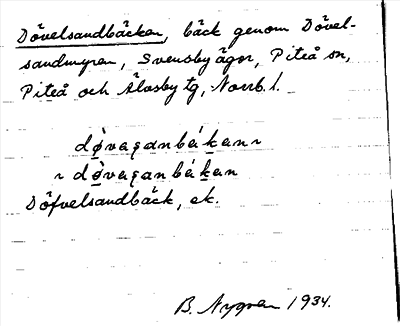 Dövelsandbäcken, bäck genom Dövel-
sandmyran, Svensbyägor, Piteå sn,
Piteå och Älvsby tg, Norrb. l.
dø̀vaʂanbákan ~
~ dø̀vaʂanbákan
Döfvelsandbäck, ek.
B. Nygren 1934.